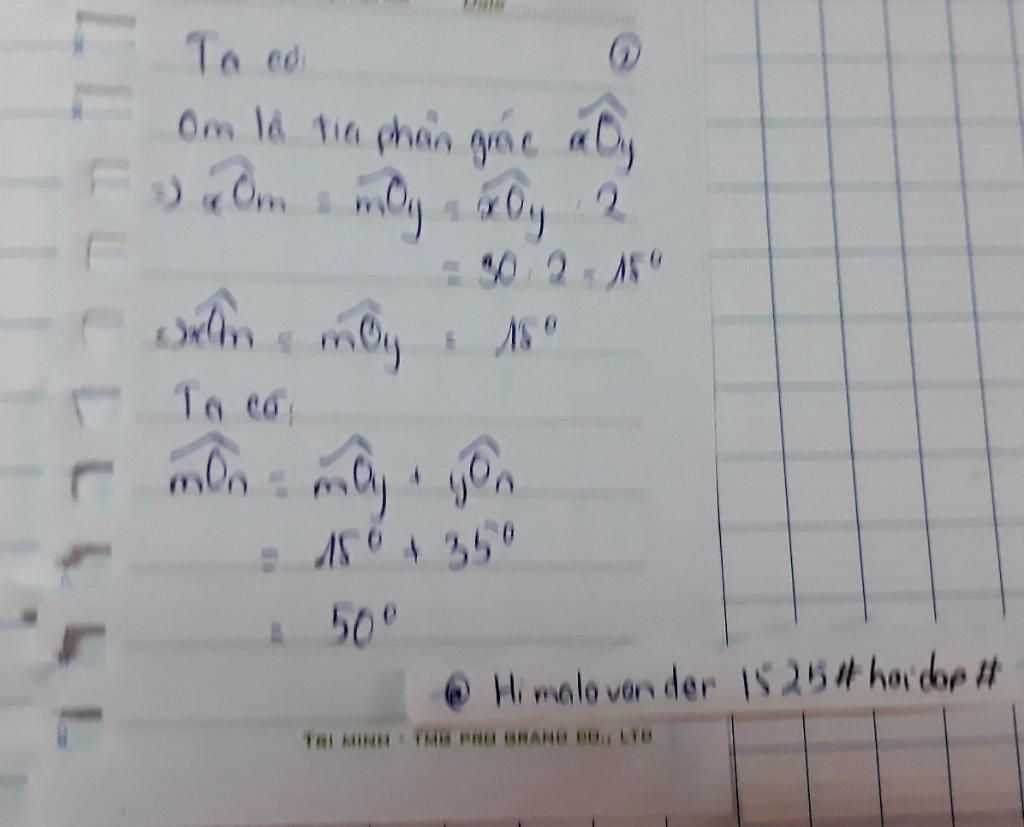 Date
Ta có: ②
Om là tia phân giác xÔy
=> xÔm = mÔy = xÔy : 2
= 30 : 2 = 15⁰
=> xÔm = mÔy = 15⁰
Ta có:
mÔn = mÔy + yÔn
= 15⁰ + 35⁰
= 50⁰
@ Himalovander 1525 # hoidap #
TRI MINH - TMG PRO BRAND CO., LTD